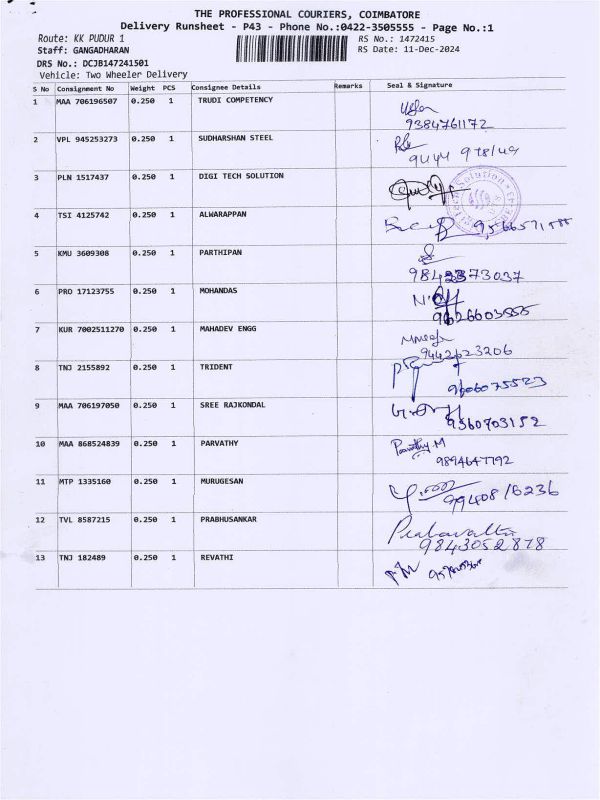 THE PROFESSIONAL COURIERS, COIMBATORE
Delivery Runsheet - P43 - Phone No.:0422-3505555 - Page No.:1
Route: KK PUDUR 1 RS No.: 1472415
Staff: GANGADHARAN RS Date: 11-Dec-2024
DRS No.: DCJB147241501
Vehicle: Two Wheeler Delivery
S No Consignment No Weight PCS Consignee Details Remarks Seal & Signature
1 MAA 706196507 0.250 1 TRUDI COMPETENCY
9384761172
2 VPL 945253273 0.250 1 SUDHARSHAN STEEL
3 PLN 1517437 0.250 1 DIGI TECH SOLUTION
Solution
4 TSI 4125742 0.250 1 ALWARAPPAN
5 KMU 3609308 0.250 1 PARTHIPAN
6 PRO 17123755 0.250 1 MOHANDAS
9626603555
7 KUR 7002511270 0.250 1 MAHADEV ENGG
9442223206
8 TNJ 2155892 0.250 1 TRIDENT
9606075523
9 MAA 706197050 0.250 1 SREE RAJKONDAL
9360703152
10 MAA 868524839 0.250 1 PARVATHY
Parvathy.M
9894647792
11 MTP 1335160 0.250 1 MURUGESAN
12 TVL 8587215 0.250 1 PRABHUSANKAR
9843052878
13 TNJ 182489 0.250 1 REVATHI